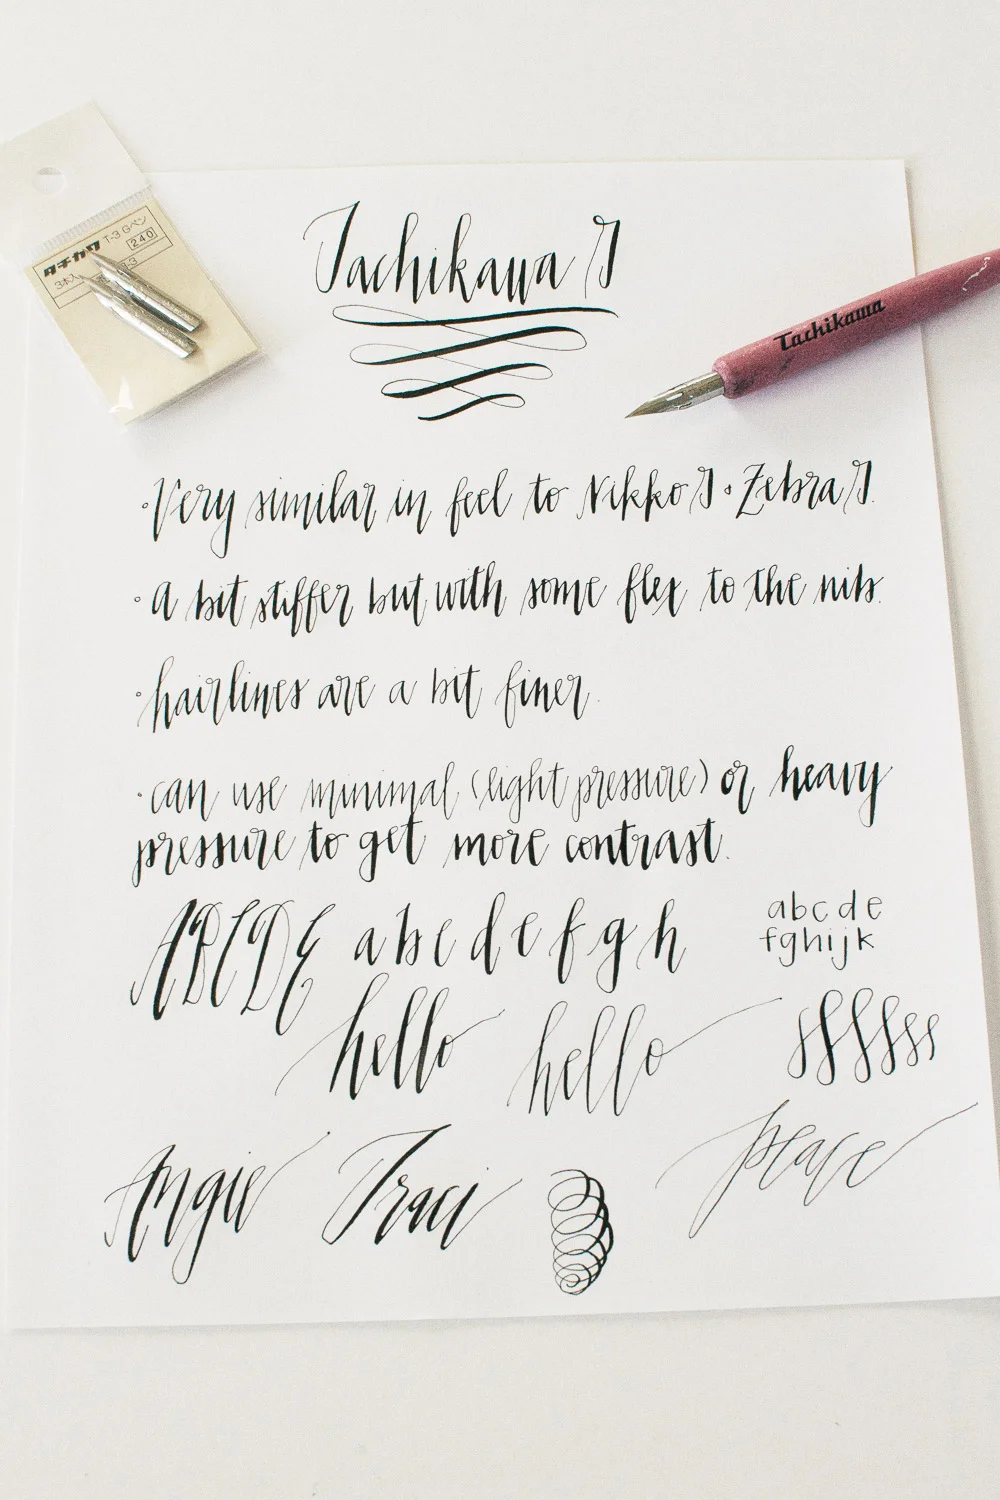 Tachikawa G
タチカワ T-3 Gペン
240
Tachikawa
• Very similar in feel to Nikko G • Zebra G.
• a bit stiffer but with some flex to the nib.
• hairlines are a bit finer.
• can use minimal (light pressure) or heavy
pressure to get more contrast.
ABCDE a b c d e f g h
a b c d e
f g h i j k
hello hello
sssssss
Angie Traci peace